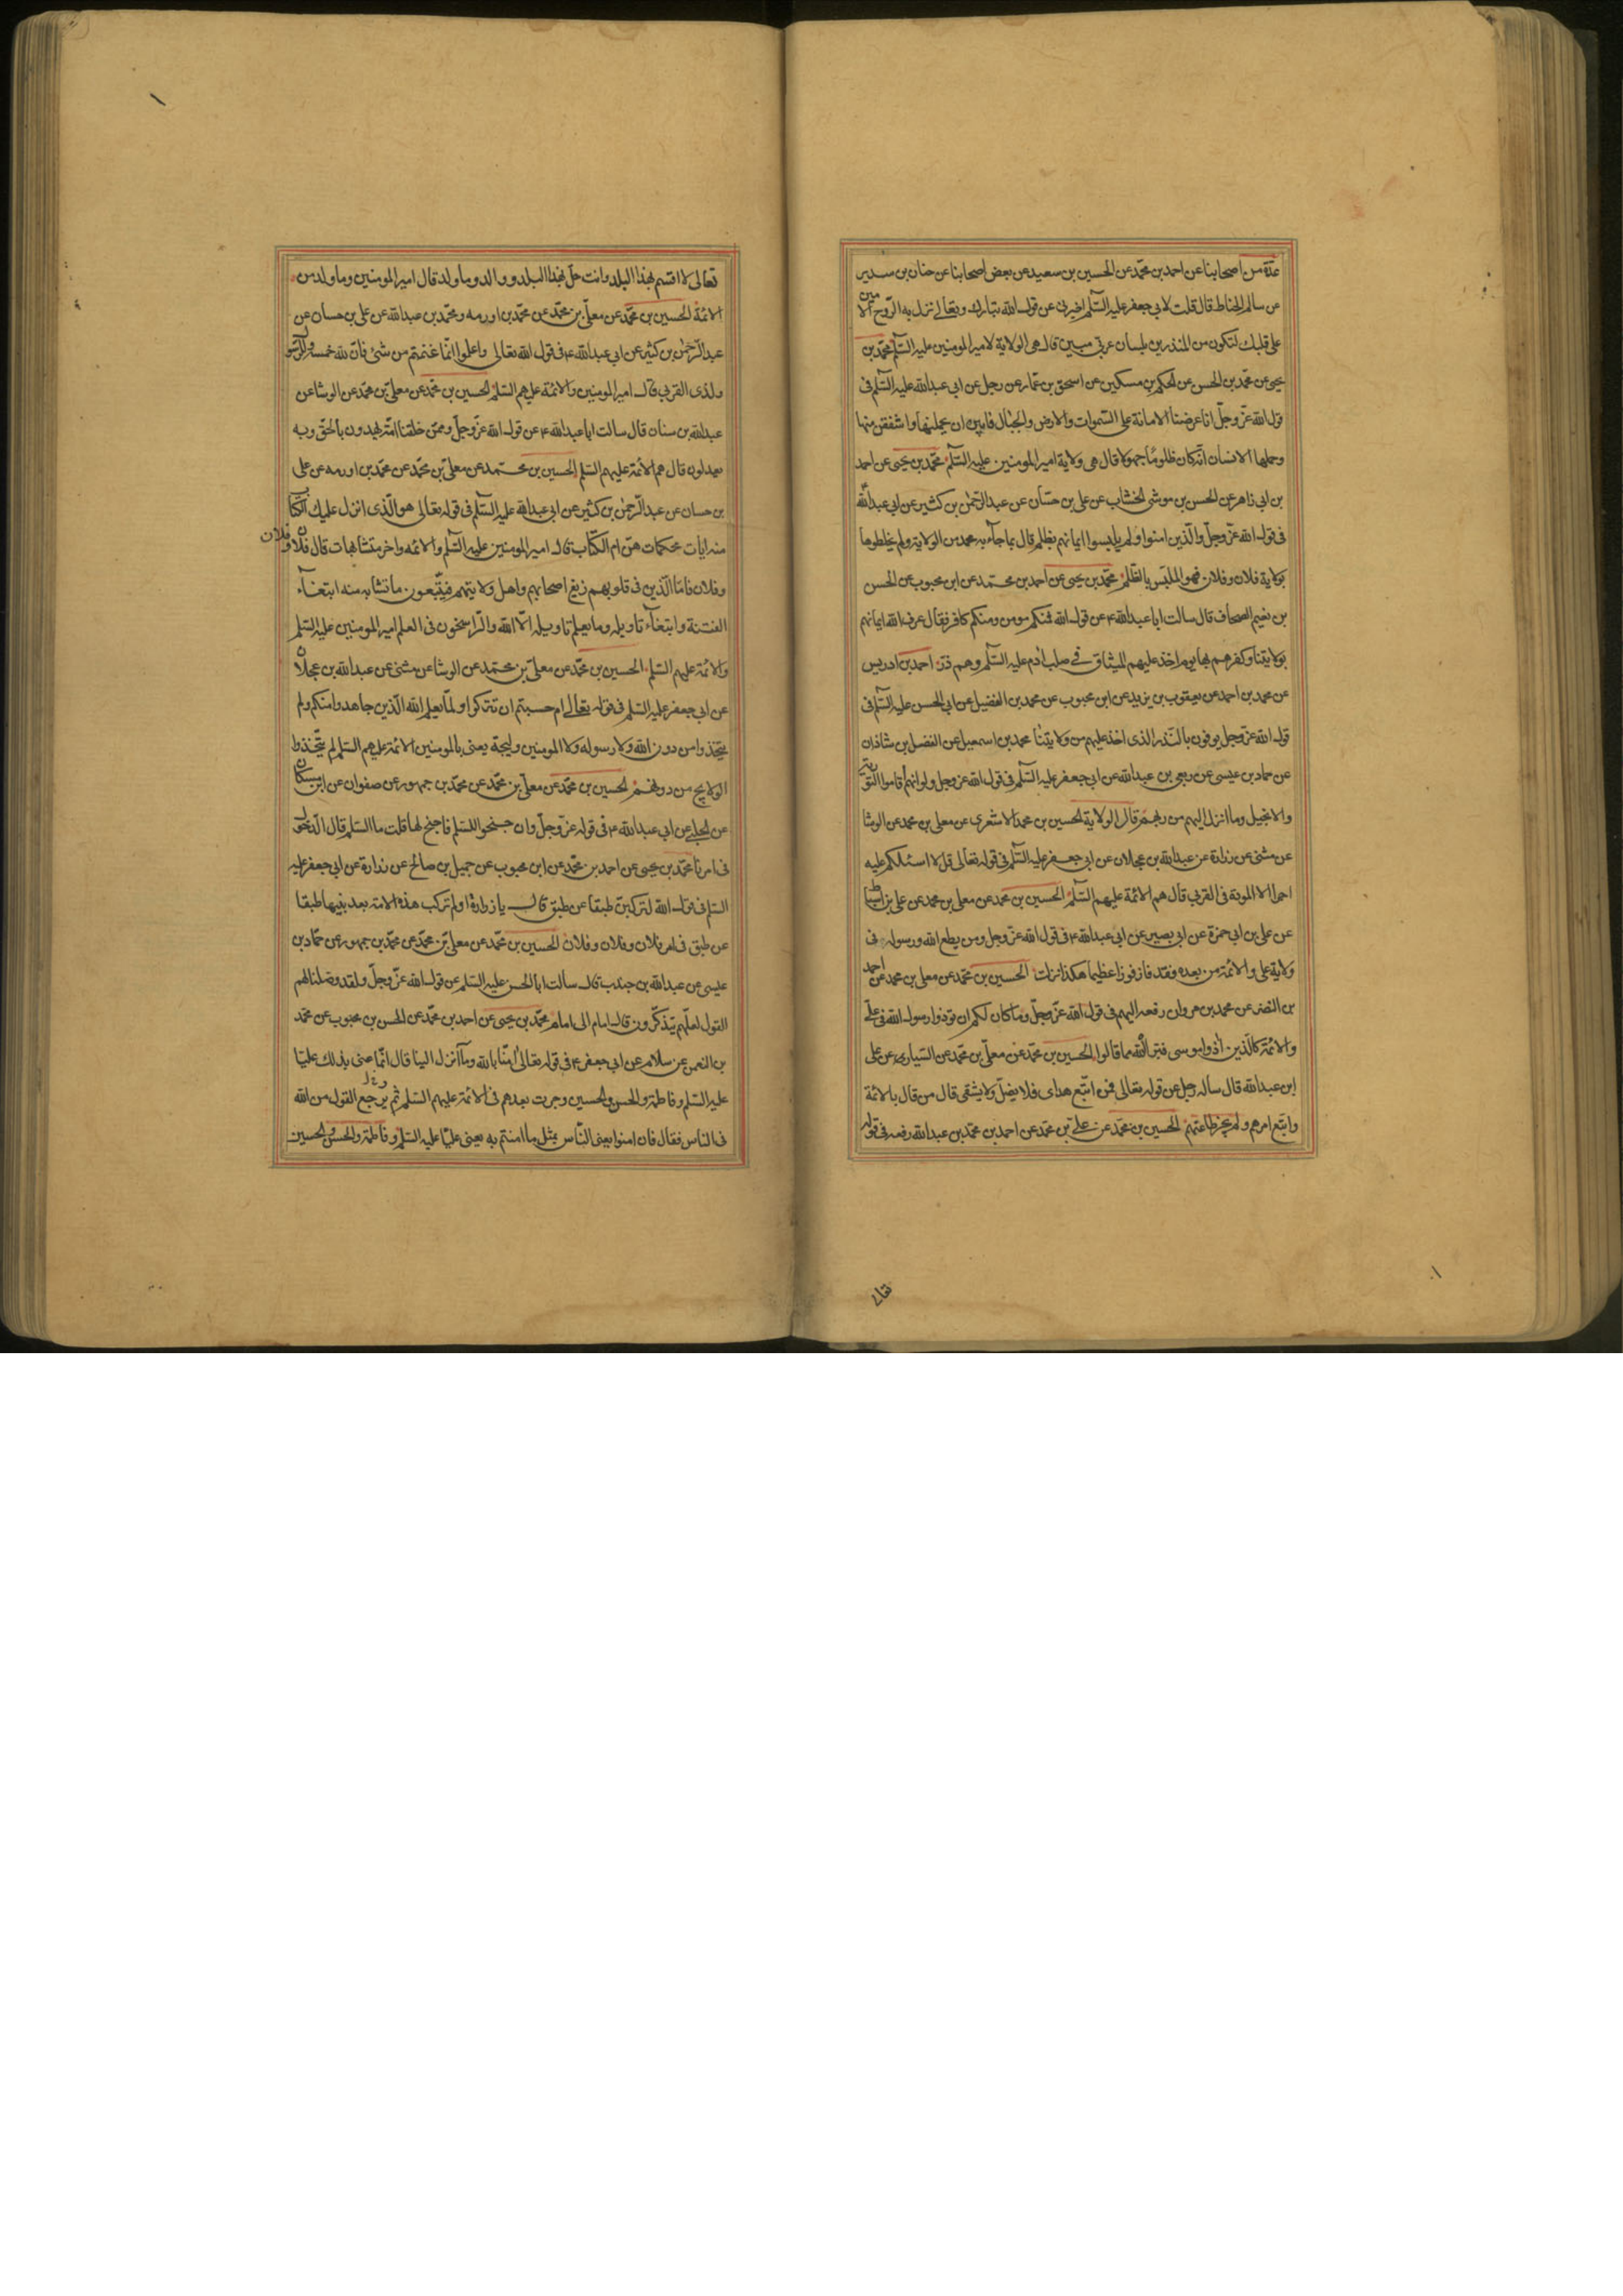 عدة من اصحابنا عن احمد بن محمد عن الحسين بن سعيد عن بعض اصحابنا عن حنان بن سدير
عن سالم الحناط قال قلت لابي جعفر عليه السلم اخبرني عن قول الله تبارك وتعالى نزل به الروح الامين
على قلبك لتكون من المنذرين بلسان عربي مبين قال هي الولاية لامير المومنين عليه السلم محمد بن
يحيى عن محمد بن الحسن عن الحكم بن مسكين عن اسحق بن عمار عن رجل عن ابي عبد الله عليه السلم في
قول الله عز وجل انا عرضنا الامانة على السموات والارض والجبال فابين ان يحملنها واشفقن منها
وحملها الانسان انه كان ظلوما جهولا قال هي ولاية امير المومنين عليه السلم محمد بن يحيى عن احمد
بن ابي زاهر عن الحسن بن موسى الخشاب عن علي بن حسان عن عبد الرحمن بن كثير عن ابي عبد الله ع
في قول الله عز وجل والذين امنوا ولم يلبسوا ايمانهم بظلم قال بما جاء به محمد من الولاية ولم يخلطوها
بولاية فلان وفلان فهو الملبس بالظلم محمد بن يحيى عن احمد بن محمد عن ابن محبوب عن الحسن
بن نعيم الصحاف قال سالت ابا عبد الله ع عن قول الله فمنكم مومن ومنكم كافر فقال عرف الله ايمانهم
بولايتنا وكفرهم بها يوم اخذ عليهم الميثاق في صلب ادم عليه السلم وهم ذر احمد بن ادريس
عن محمد بن احمد عن يعقوب بن يزيد عن ابن محبوب عن محمد بن الفضيل عن ابي الحسن عليه السلم في
قول الله عز وجل يوفون بالنذر الذى اخذ عليهم من ولايتنا محمد بن اسمعيل عن الفضل بن شاذان
عن حماد بن عيسى عن ربعي بن عبد الله عن ابي جعفر عليه السلم في قول الله عز وجل ولو انهم اقاموا التورية
والانجيل وما انزل اليهم من ربهم قال الولاية الحسين بن محمد الاشعري عن معلى بن محمد عن الوشا
عن مثنى عن زرارة عن عبد الله بن عجلان عن ابي جعفر عليه السلم في قوله تعالى قل لا اسئلكم عليه
اجرا الا المودة في القربى قال هم الائمة عليهم السلم الحسين بن محمد عن معلى بن محمد عن علي بن اسباط
عن علي بن ابي حمزة عن ابي بصير عن ابي عبد الله ع في قول الله عز وجل ومن يطع الله ورسوله في
ولاية علي والائمة من بعده فقد فاز فوزا عظيما هكذا نزلت الحسين بن محمد عن معلى بن محمد عن احمد
بن النضر عن محمد بن مروان رفعه اليهم في قول الله عز وجل وما كان لكم ان توذوا رسول الله في علي
والائمة كالذين اذوا موسى فبراه الله مما قالوا الحسين بن محمد عن معلى بن محمد عن السياري عن علي
ابن عبد الله قال ساله رجل عن قوله تعالى فمن اتبع هداي فلا يضل ولا يشقى قال من قال بالائمة
واتبع امرهم ولم يجز طاعتهم الحسين بن محمد عن علي بن محمد عن احمد بن محمد بن عبد الله رفعه في قوله
تعالى
تعالى لا اقسم بهذا البلد وانت حل بهذا البلد ووالد وما ولد قال امير المومنين وما ولد من
الائمة الحسين بن محمد عن معلى بن محمد عن محمد بن اورمه ومحمد بن عبد الله عن علي بن حسان عن
عبد الرحمن بن كثير عن ابي عبد الله ع في قول الله تعالى واعلموا انما غنمتم من شئ فان لله خمسه وللرسول
ولذى القربى قال امير المومنين والائمة عليهم السلم الحسين بن محمد عن معلى بن محمد عن الوشا عن
عبد الله بن سنان قال سالت ابا عبد الله ع عن قول الله عز وجل وممن خلقنا امة يهدون بالحق وبه
يعدلون قال هم الائمة عليهم السلم الحسين بن محمد عن معلى بن محمد عن محمد بن اورمه عن علي
بن حسان عن عبد الرحمن بن كثير عن ابي عبد الله عليه السلم في قوله تعالى هو الذى انزل عليك الكتاب
منه ايات محكمات هن ام الكتاب قال امير المومنين عليه السلم والائمه واخر متشابهات قال فلان وفلان
وفلان فاما الذين في قلوبهم زيغ اصحابهم واهل ولايتهم فيتبعون ما تشابه منه ابتغاء
الفتنة وابتغاء تاويله وما يعلم تاويله الا الله والراسخون في العلم امير المومنين عليه السلم
والائمة عليهم السلم الحسين بن محمد عن معلى بن محمد عن الوشا عن مثنى عن عبد الله بن عجلان
عن ابي جعفر عليه السلم في قوله تعالى ام حسبتم ان تتركوا ولما يعلم الله الذين جاهدوا منكم ولم
يتخذوا من دون الله ولا رسوله ولا المومنين وليجة يعني بالمومنين الائمة عليهم السلم لم يتخذوا
الولايج من دونهم الحسين بن محمد عن معلى بن محمد عن محمد بن جمهور عن صفوان عن ابن مسكان
عن الحلبي عن ابي عبد الله ع في قوله عز وجل وان جنحوا للسلم فاجنح لها قلت ما السلم قال الدخول
في امرنا محمد بن يحيى عن احمد بن محمد عن ابن محبوب عن جميل بن صالح عن زرارة عن ابي جعفر عليه
السلم في قول الله لتركبن طبقا عن طبق قال يا زرارة اولم تركب هذه الامة بعد نبيها طبقا
عن طبق في امر فلان وفلان وفلان الحسين بن محمد عن معلى بن محمد عن محمد بن جمهور عن حماد بن
عيسى عن عبد الله بن جندب قال سالت ابا الحسن عليه السلم عن قول الله عز وجل ولقد وصلنا لهم
القول لعلهم يتذكرون قال امام الى امام محمد بن يحيى عن احمد بن محمد عن الحسن بن محبوب عن محمد
بن النعمن عن سلام عن ابي جعفر ع في قوله تعالى امنا بالله وما انزل الينا قال انما عنى بذلك عليا
عليه السلم وفاطمة والحسن والحسين وجرت بعدهم في الائمة عليهم السلم ثم يرجع القول من الله
في الناس فقال فان امنوا يعني الناس بمثل ما امنتم به يعني عليا عليه السلم وفاطمة والحسن والحسين